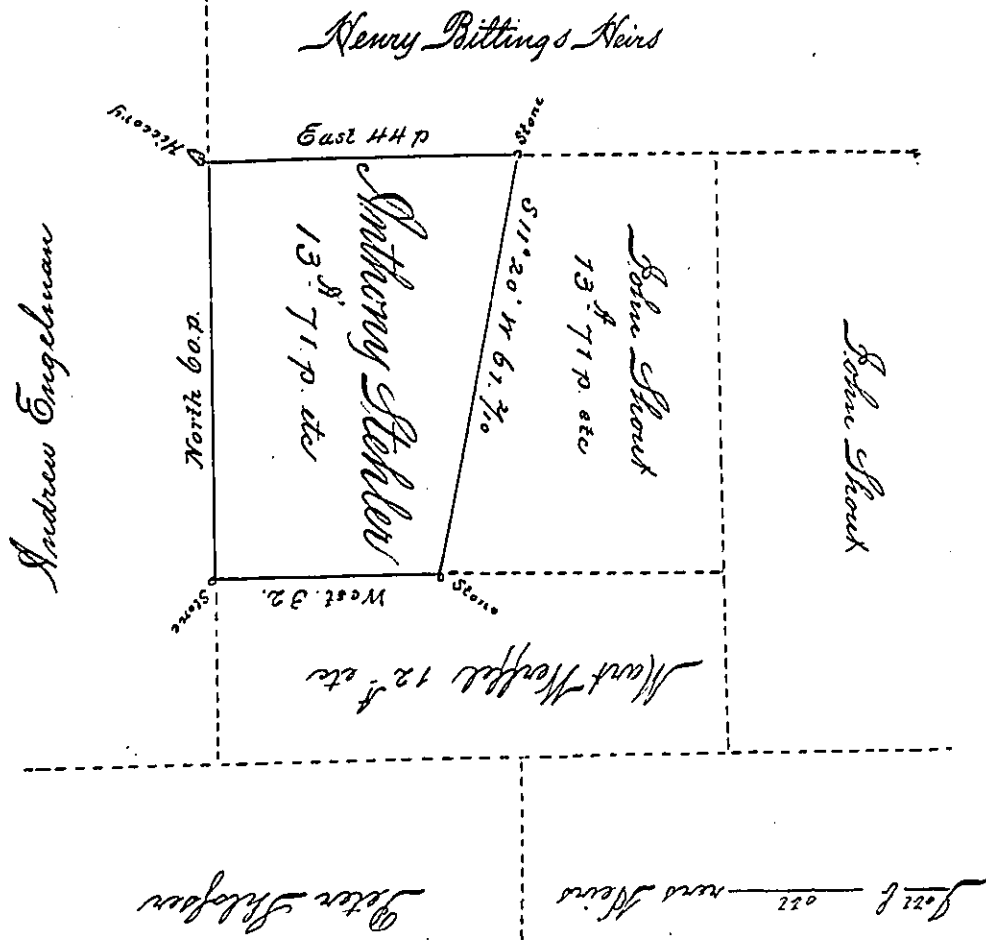 Henry Bittings Heirs
Hiccory
East 44 p
Stone
Andrew Engelman
North 60. p.
Anthony Stehler
13 A. 71. p. etc
S 11° 20' W 61. 2/10
John Shout
13 A. 71 p. etc
John Shout
Stone
West. 32.
Stone
Mart Werffel 12 A. etc
Peter
ners Heirs